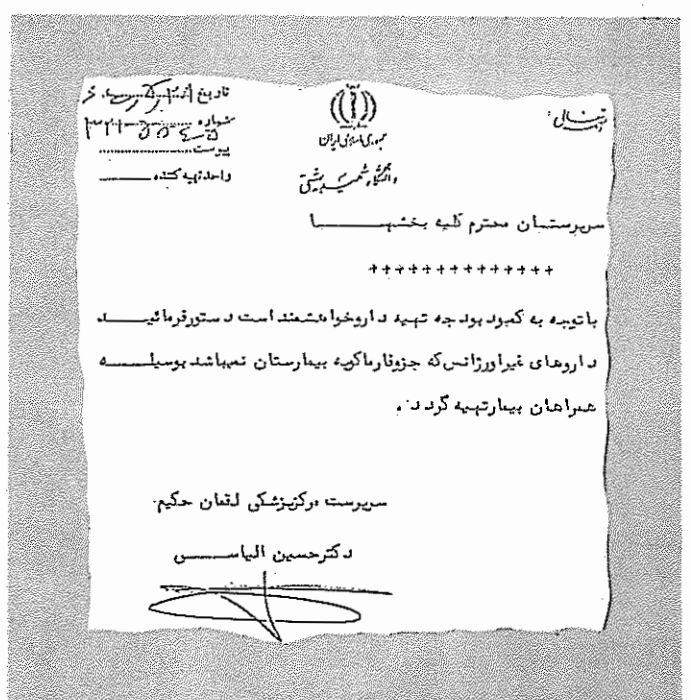 بسمه تعالی
جمهوری اسلامی ایران
دانشگاه شهید بهشتی
تاریخ
شماره
پیوست
واحد تهیه کننده
سرپرستان محترم کلیه بخشها
++++++++++++++
با توجه به کمبود بودجه تهیه دارو خواهشمند است دستور فرمائید
داروهای غیر اورژانس که جزو فارماکوپه بیمارستان نمیباشد بوسیله
همراهان بیمار تهیه گردد.
سرپرست مرکز پزشکی لقمان حکیم
دکتر حسین الیاسی